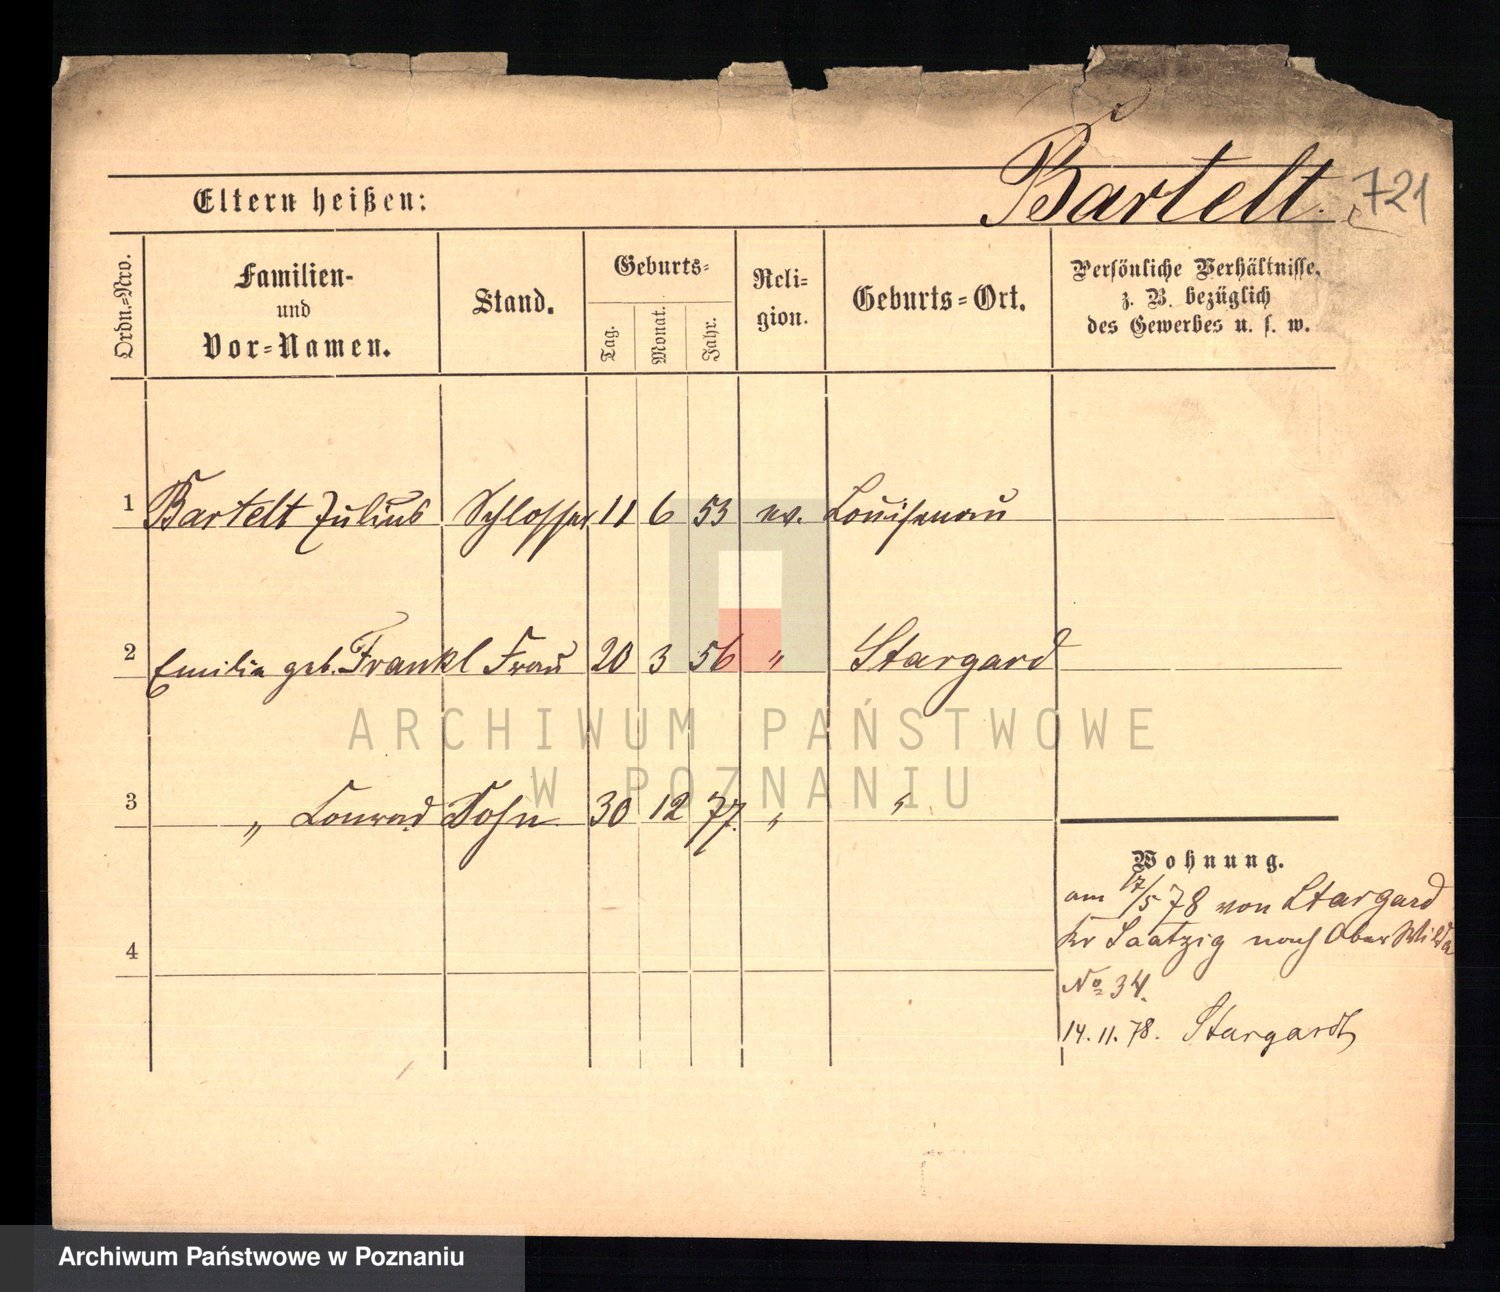 Bartelt. 721
Eltern heißen:
Ordn.=Nro.
Familien-
und
Vor=Namen.
Stand.
Geburts=
Tag.
Monat.
Jahr.
Reli=
gion.
Geburts=Ort.
Persönliche Verhältnisse,
z. B. bezüglich
des Gewerbes u. s. w.
1 Bartelt Julius Schlosser 11 6 53 ev. Louisenau
2 Emilia geb. Frankl Frau 20 3 56 " Stargard
3 " Conrad Sohn 30 12 77. " "
4
Wohnung.
am 17/5 78 von Stargard
Kr Saatzig nach Ober Wilda
No 34.
14.11.78. Stargardt
ARCHIWUM PAŃSTWOWE
W POZNANIU
Archiwum Państwowe w Poznaniu